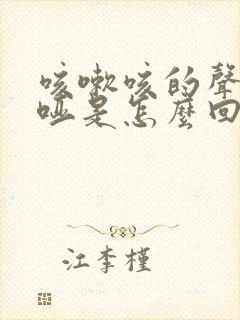 咳嗽咳的聲
啞是怎麼回
江李槿